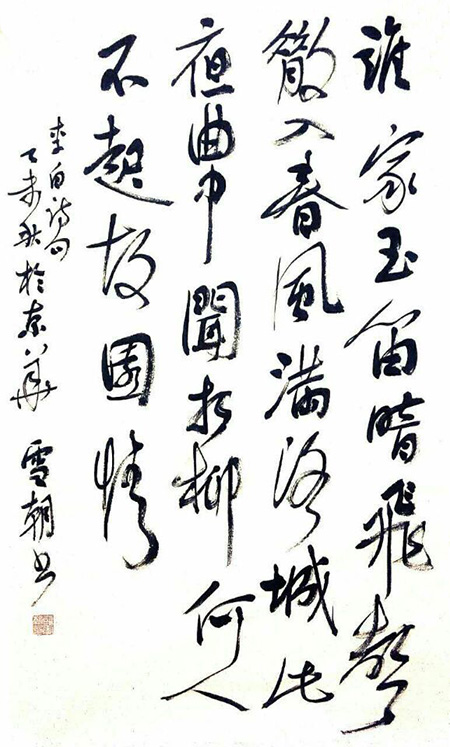 誰家玉笛暗飛聲
散入春風滿洛城此
夜曲中聞折柳何人
不起故園情
李白詩句
乙未秋於京華 雪朝书